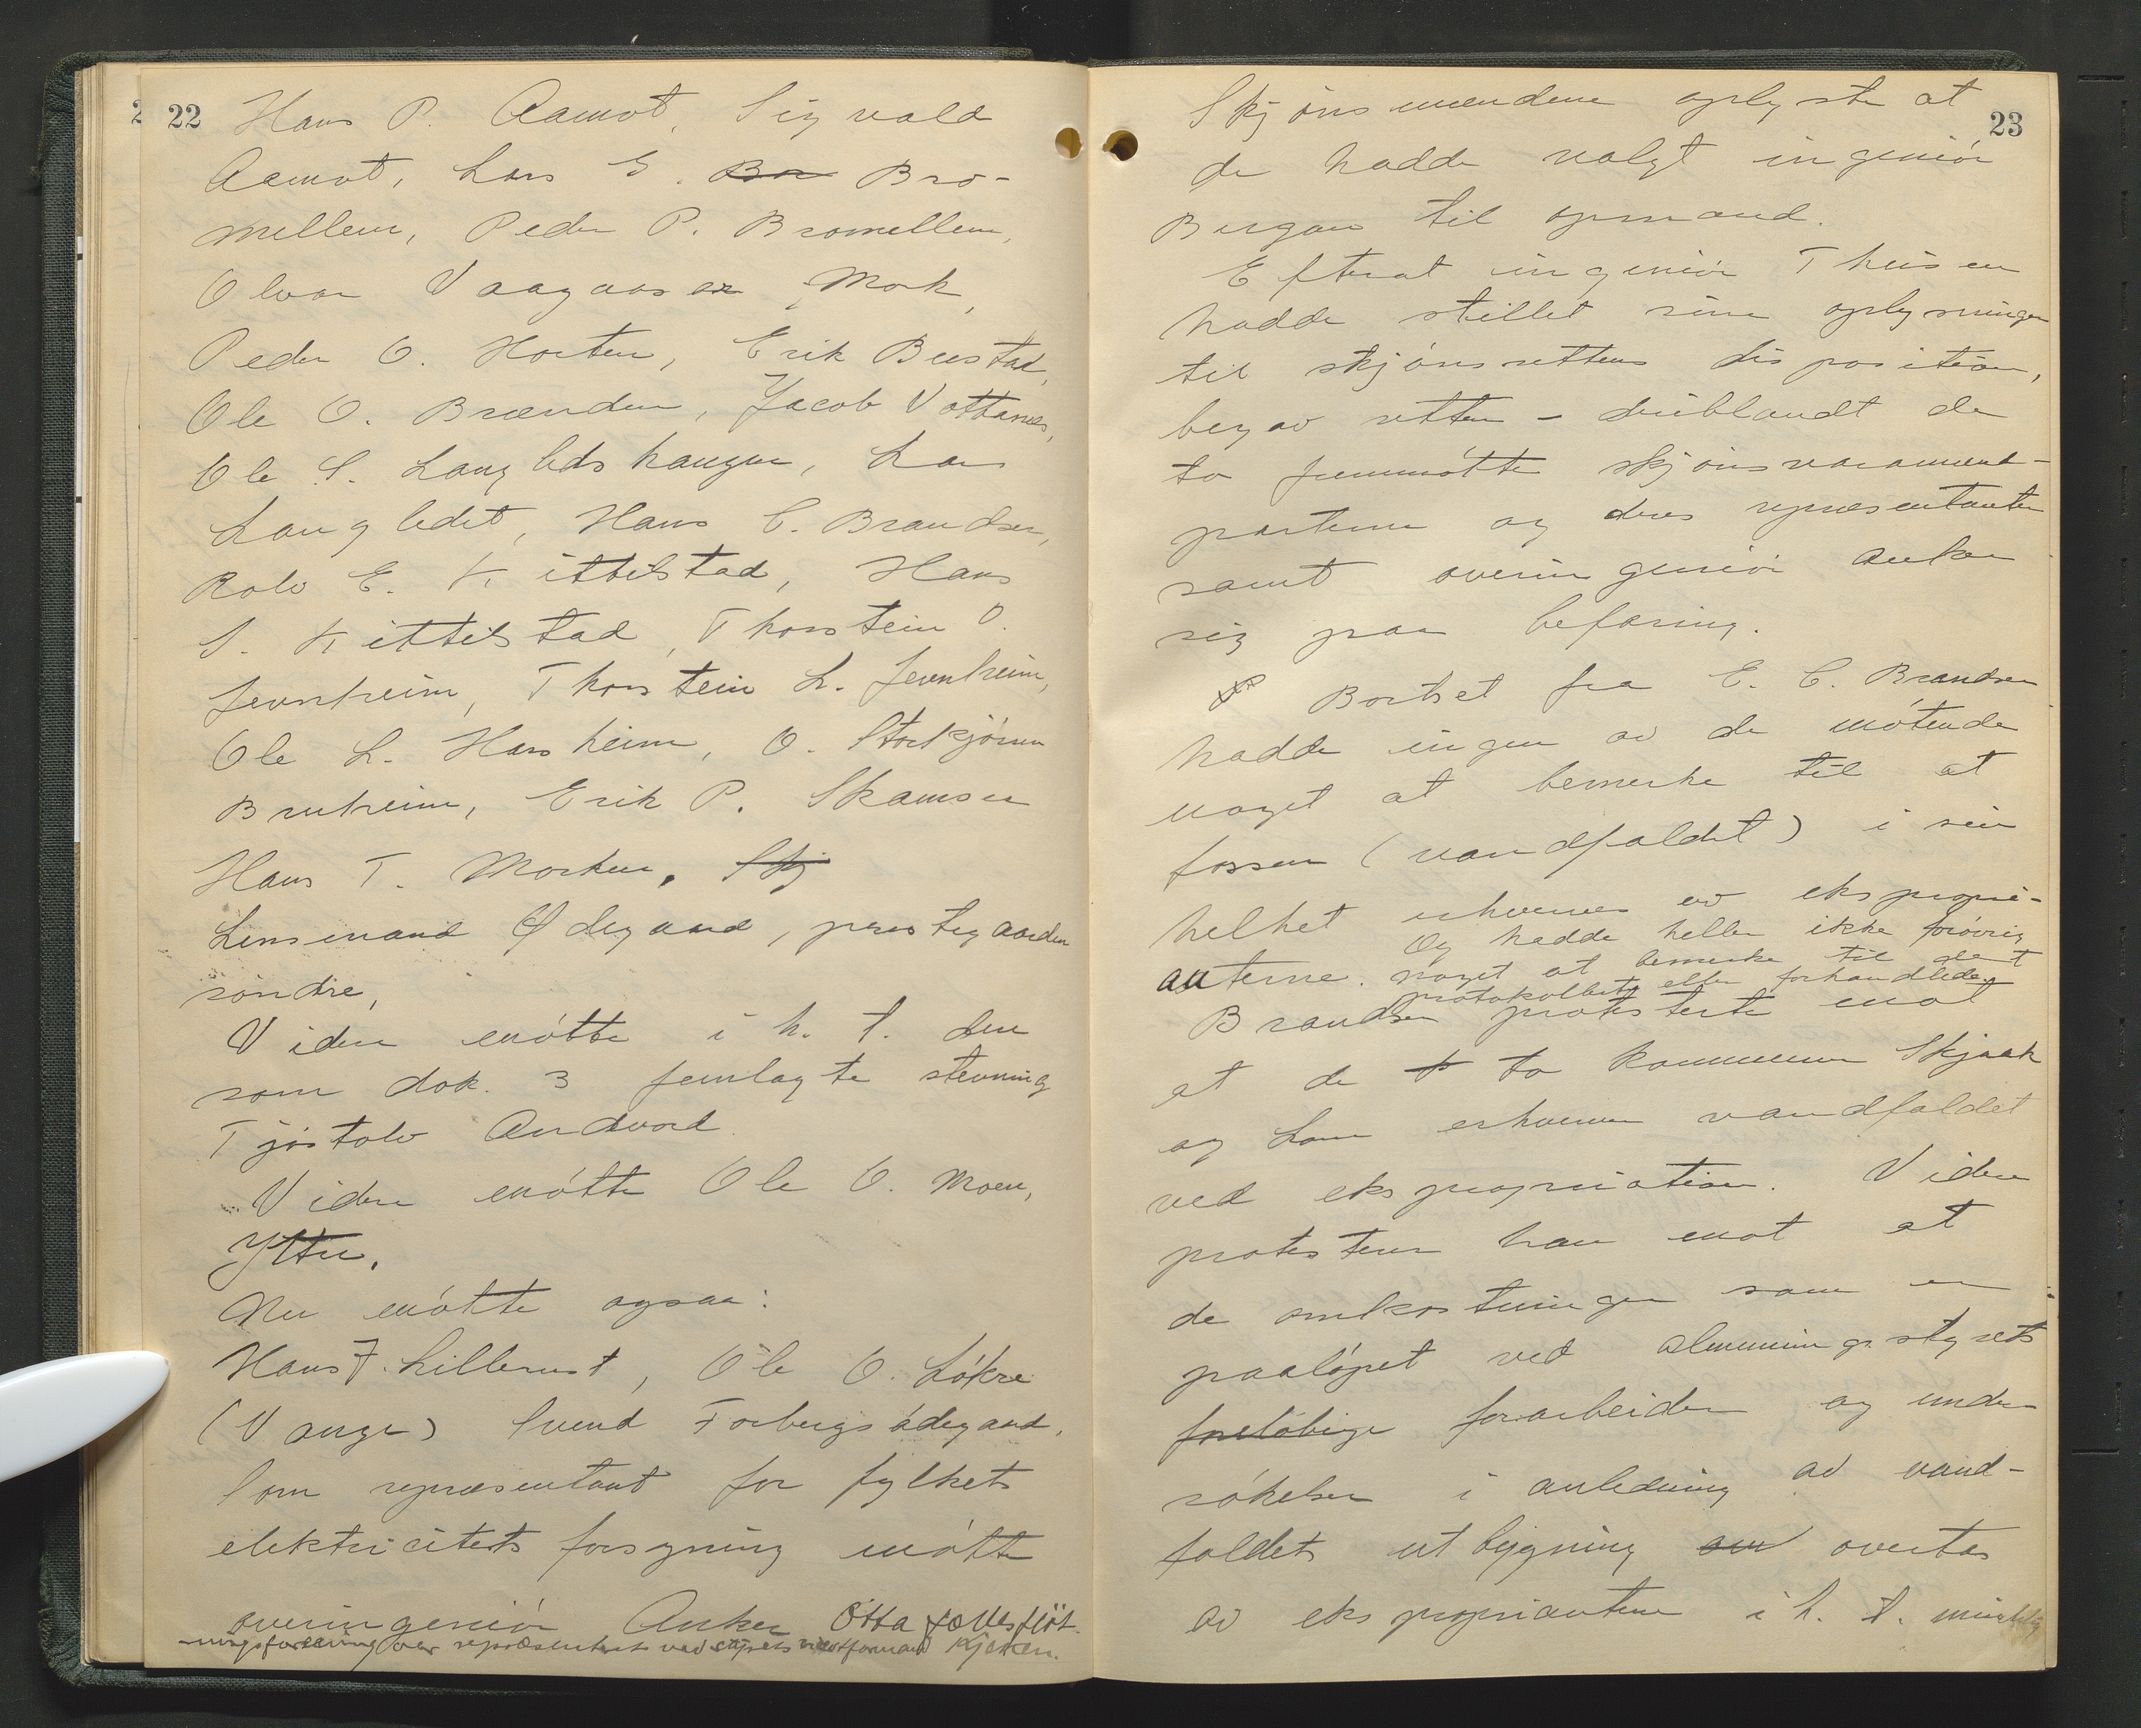 22
Hans P. Aamot, Sigvald
Aamot, Lars E. Bro-
mellem, Peder P. Bromellem,
Olvar Vaagaasar Mork,
Peder O. Horten, Erik Bustad,
Ole O. Brænden, Jacob Vottanes,
Ole S. Langledshaugen, Lars
Langledet, Hans C. Brandsen,
Rolv E. Kittilstad, Hans
S. Kittilstad, Thorstein O.
Jevnheim, Thorstein L. Jevnheim,
Ole L. Harsheim, O. Storkjørren
Bruheim, Erik P. Skamsar
Hans T. Morken.
Lensmand Ødegaard, prestegaarden
søndre,
Videre møtte i h. t. den
som dok. 3 fremlagte stevning
Tjøstolv Andvord
Videre møtte Ole O. Moen,
Ytter.
Nu møtte ogsaa:
Hans F. Lillerust, Ole O. Løkre
(Vange) Svend Forbergsødegaard.
Som repræsentant for fylkets
elektricitetsforsyning møtte
overingeniør Anker Otta fællesfløt-
ningsforening var repræsentert ved styrets viceformand Kjæken.
23
Skjønsmændene oplyste at
de hadde valgt ingeniør
Bergan til opmand.
Efterat ingeniør Theisen
hadde stillet sine oplysninger
til skjønsrettens disposition,
begav retten - deriblandt de
to fremmøtte skjønsvaramænd -
parterne og deres repræsentanter
samt overingeniør Anker
sig paa befaring.
Bortset fra E. C. Brandsen
hadde ingen av de møtende
noget at bemerke til at
fossen (vandfaldet) i sin
helhet erhverves av ekspropri-
anterne. Og hadde heller ikke forøvrig
noget at bemerke til det
protokollerte eller forhandlede.
Brandsen protesterte mot
at de to kommuner Skjaak
og Lom erhverver vandfaldet
ved ekspropriation. Videre
protesterer han mot at
de omkostninger som er
paaløpet ved almenningsstyrets
foreløbige forarbeider og under-
søkelser i anledning av vand-
faldets utbygning overtas
av ekspropriantene i h. t. mundtlig